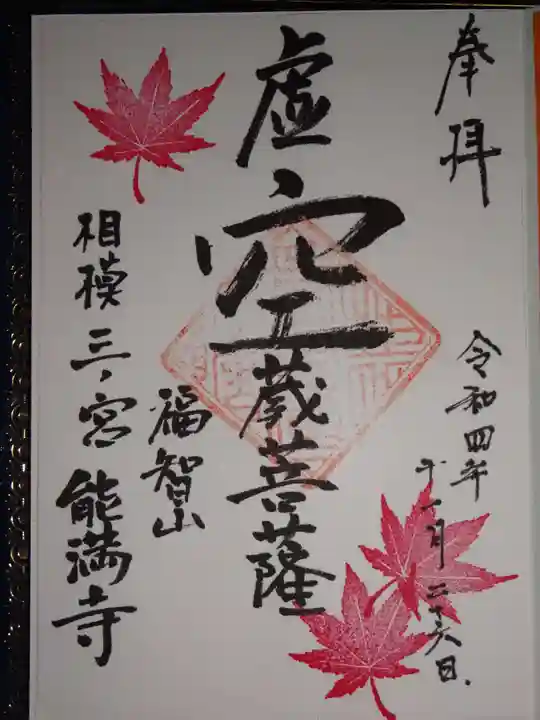 奉拝
令和四年
十一月二十六日.
虚空蔵菩薩
福智山
相模三ノ宮能満寺